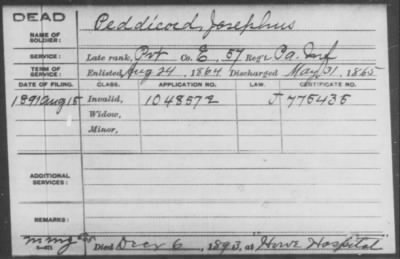 DEAD
NAME OF SOLDIER: Peddicord, Josephus
SERVICE: Late rank, Pvt Co. E, 57 Reg't Pa. Inf
TERM OF SERVICE: Enlisted Aug 24, 1864 Discharged May 31, 1865
DATE OF FILING. CLASS. APPLICATION NO. LAW. CERTIFICATE NO.
1891 Aug 15 Invalid, 1048572 J 775435
Widow,
Minor,
ADDITIONAL SERVICES:
REMARKS:
Died Decr 6, 1893, at "Howe Hospital"